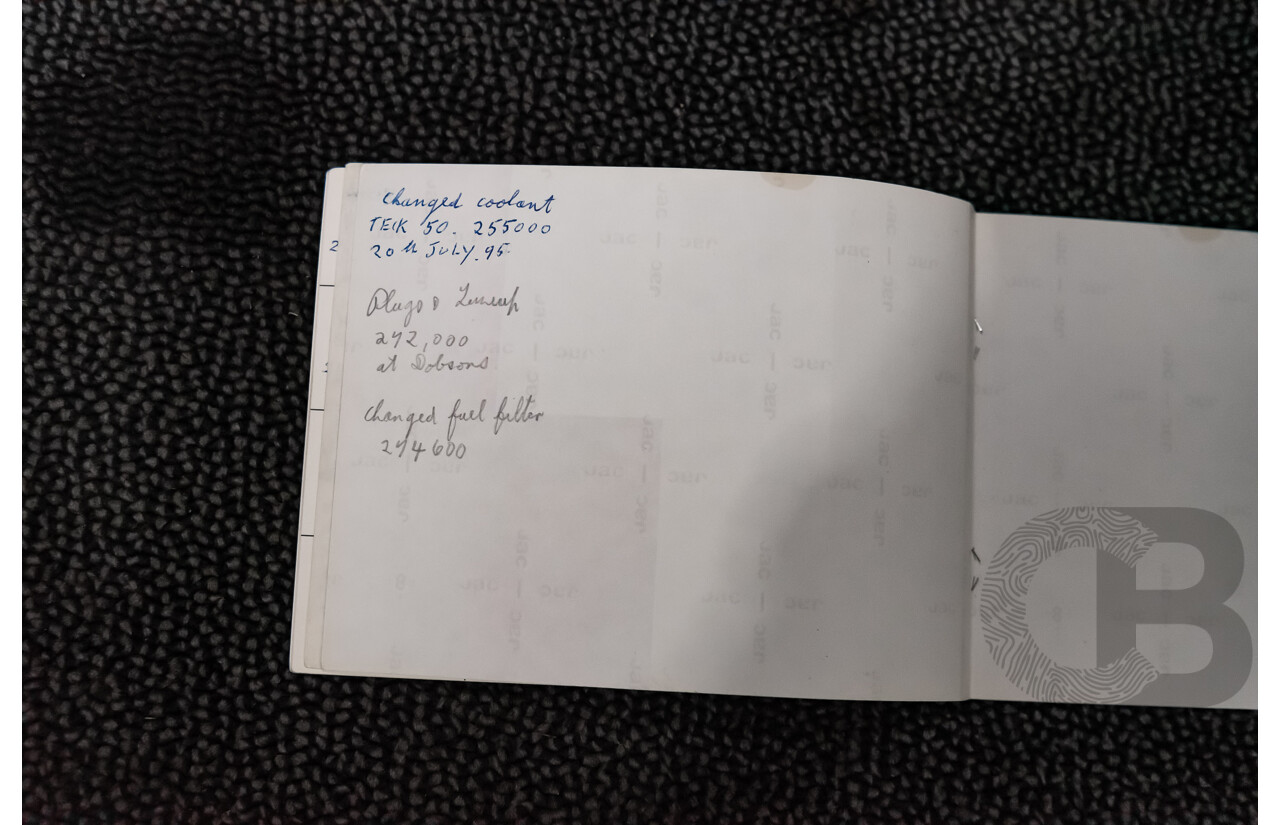 Changed coolant
TEIK 50. 255000
20th JULY.95.
Plugs & Tuneup
272,000
at Dobsons
Changed fuel filter
274600
2
CB